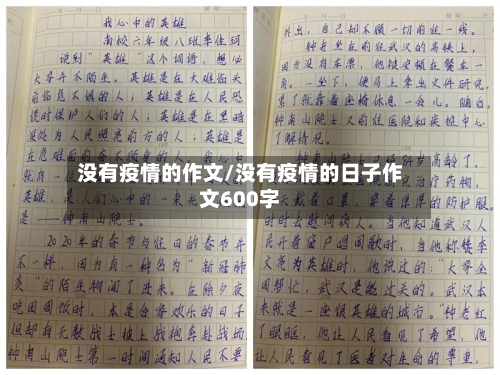 我心中的英雄
南校六年级八班李佳珂
说到“英雄”这个词语，想必
大家并不陌生。英雄是在大难临头
前临危不惧的人；英雄是在人民恐
慌时保护人们的人；英雄是在黑暗
深处为人民照亮前方的人；英雄是
在危难面前
就是
英雄，是人们心中的一束光
是——钟南山院士。
2020年的春节与往日的春节并
不一样，因为有一种名为“新冠肺
炎”的陌生物闯了进来。在除夕夜
吃团圆饭时，本是合家欢乐的日子
但却有无数战士披上战袍奔赴战场，
钟南山院士第一时间通知人民不要
外出，自己却不顾一切前往一线。
钟老坐在前往武汉的高铁上，
因为没有车票，他被安顿在餐车一
角。一坐下，便马上拿出文件研究，
累了就靠着座椅休息一会儿。随后，
钟南山院士又前往医院和疾控中心
了解情况。
84岁高龄了，
研究治疗药物，
天戴着口罩，穿着厚厚的防护服，
时时去慰问病人。当他知道武汉人
民开着窗户唱国歌时，当他称赞李
文亮为英雄时，他说过的：“大家全
国帮忙，武汉是能过关的。武汉本
来就是一座很英雄的城市。”钟老红
了眼眶，他让人民看见了希望，他
让人民看见了医者对生命的尊重，
没有疫情的作文/没有疫情的日子作
文600字